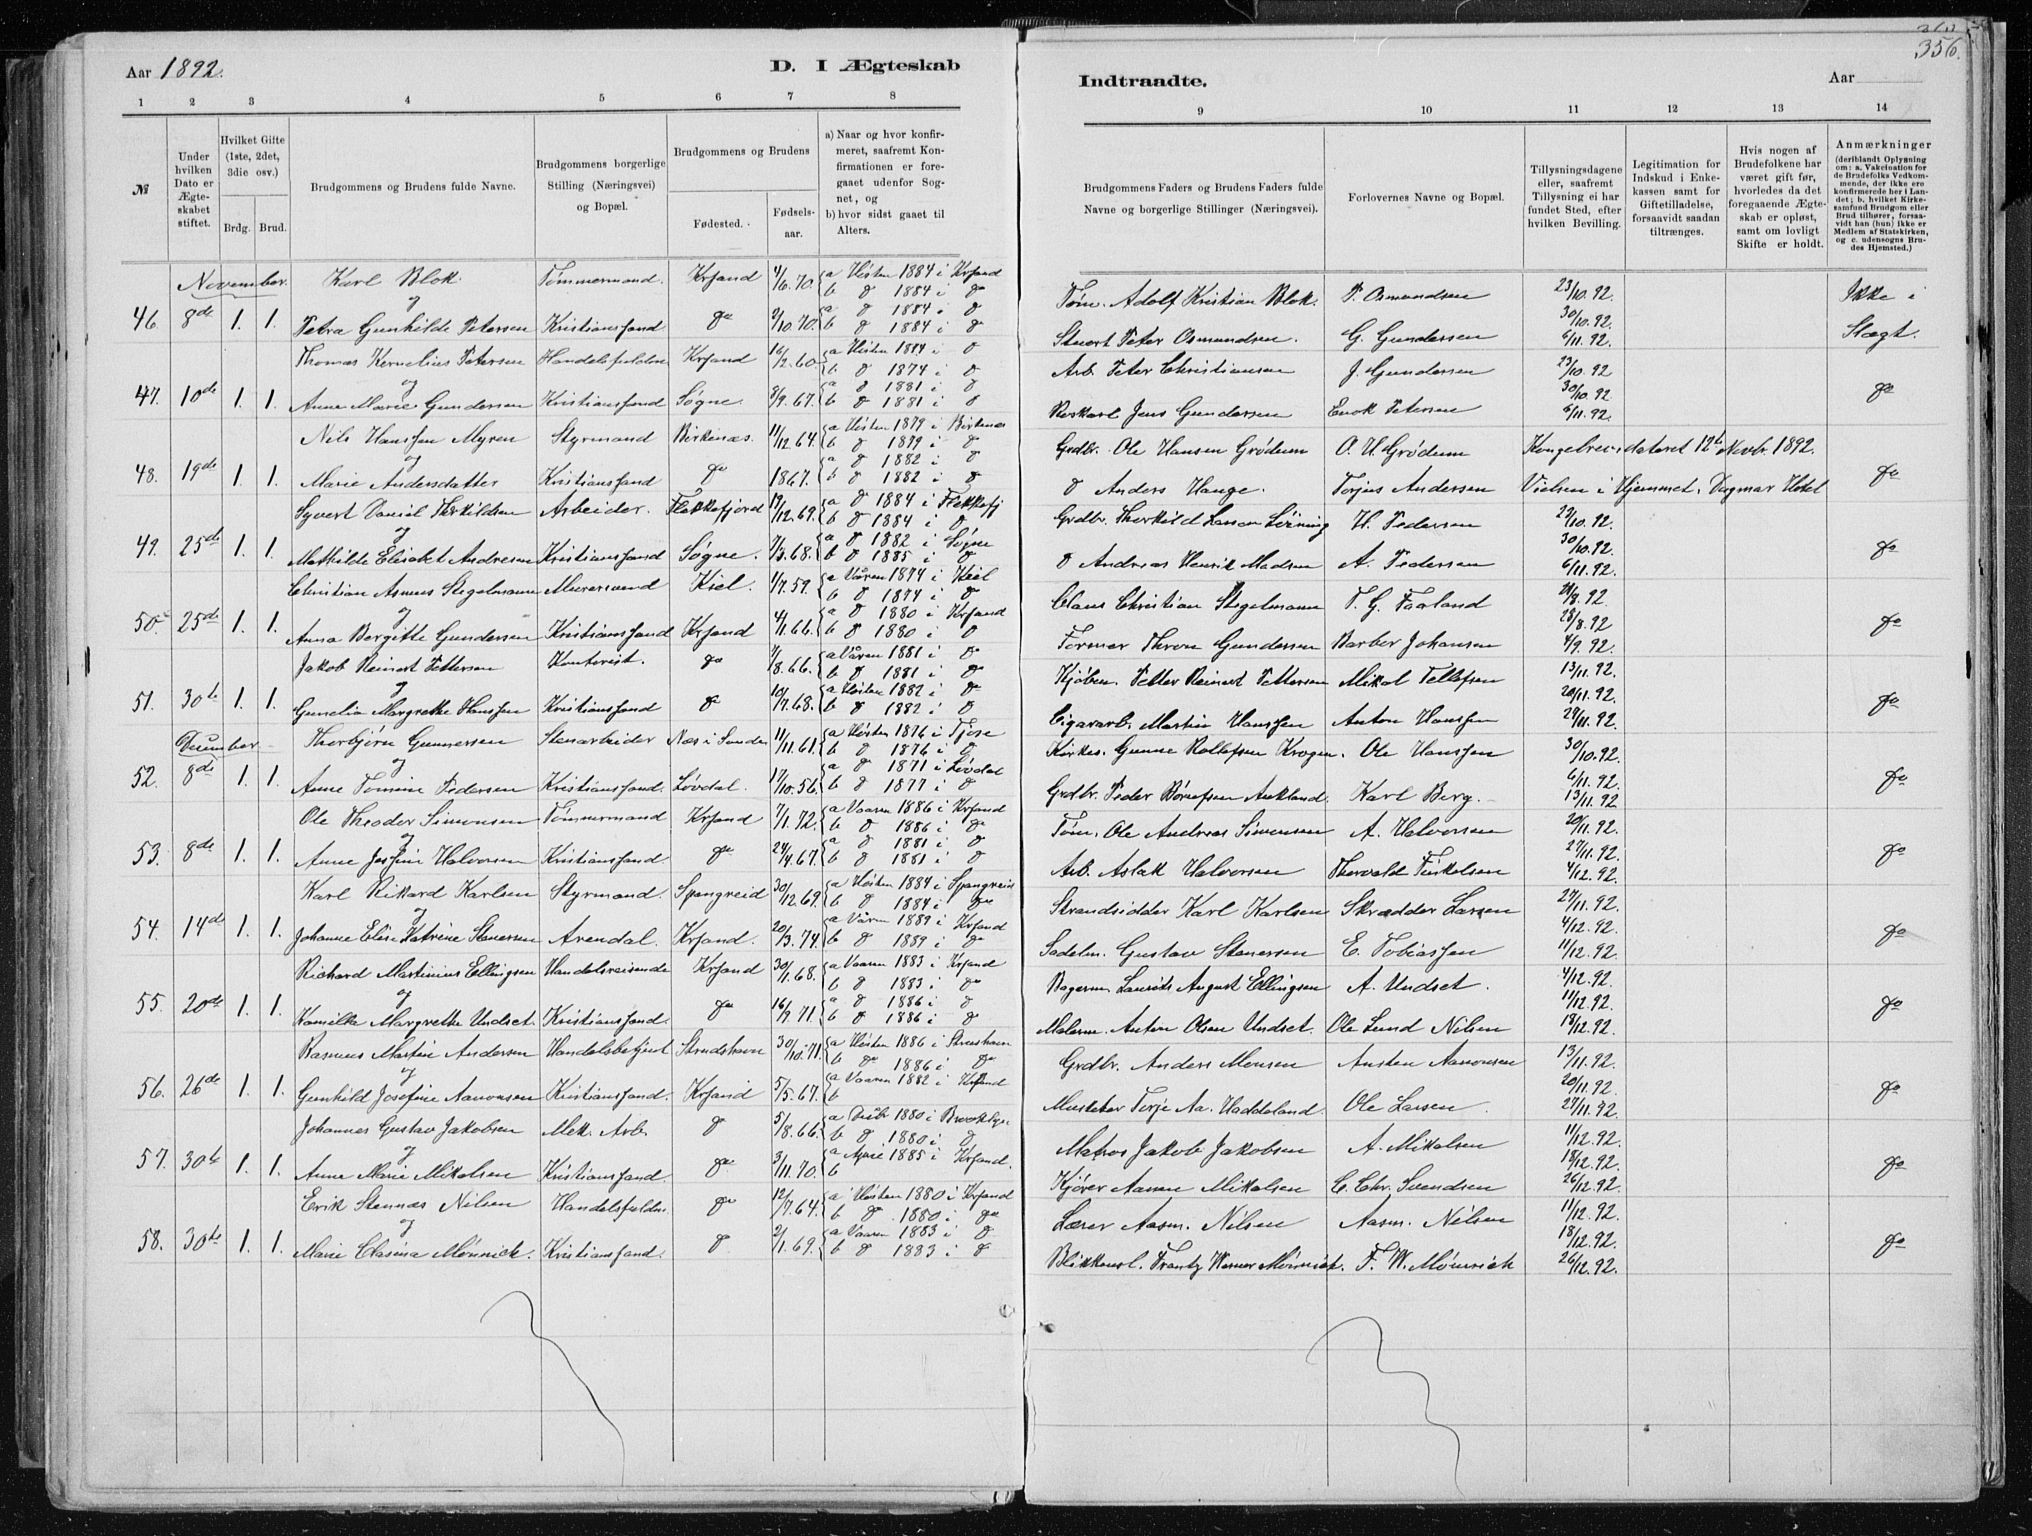 Aar 1892.
D. I Ægteskab
1 2 3 4 5 6 7 8
№
Under hvilken Dato er Ægteskabet stiftet.
Hvilket Gifte (1ste, 2det, 3die osv.)
Brdg. Brud.
Brudgommens og Brudens fulde Navne.
Brudgommens borgerlige Stilling (Næringsvei) og Bopæl.
Brudgommens og Brudens
Fødested. Fødselsaar.
a) Naar og hvor konfirmeret, saafremt Konfirmationen er foregaaet udenfor Sognet, og
b) hvor sidst gaaet til Alters.
November. Karl Blok Tømmermand Krsand 4/6.70. a Høsten 1884 i Krsand
og b d 1884 i do
46 8de 1. 1. Petra Gunhilde Petersen Kristianssand do 2/10.70. a d 1884 i d
b d 1884 i do
Thomas Kornelius Petersen Krsand 16/2.60 a Høsten 1874 i d
og b d 1874 i d
47. 10de 1. 1. Anne Marie Gundersen Kristianssand Søgne. 8/9.67. a d 1881 i d
b d 1881 i d
Nils Hanssen Myren Styrmand Birkenæs. 11/12.64. a Høsten 1879 i Birkenæs
og b d 1879 i d
48. 19de 1. 1. Marie Andersdatter Kristianssand do 1867. a d 1882 i d
b d 1882 i d
Syvert Daniel Therkildsen Arbeider. Flekkefjord 19/12.69. a d 1884 i Flekkefj
og b d 1884 i d
49. 25de 1. 1. Mathilde Elisabet Andresen Kristianssand Søgne. 7/3.68. a d 1882 i Søgne
b d 1885 i d
Christian Asmus Stegelmann Murersvend Kiel. 1/7.59. a Våren 1874 i Kiel
og b d 1874 i d
50. 25de 1. 1. Anna Bergitte Gundersen Kristianssand Krsand 4/11.66. a d 1880 i Krsand
b d 1880 i d
Jakob Reinert Pettersen Kontorist. do 7/8.66. a Våren 1881 i d
og b d 1881 i do
51. 30te 1. 1. Gunelia Margrethe Hanssen Kristianssand do 10/7.68. a Høsten 1882 i do
b d 1882 i d
December Thorbjørn Gunnersen Stenarbeider Næs i Sunde 11/11.61. a Høsten 1876 i Tjose
og b d 1876 i d
52. 8de 1. 1. Anne Tomine Pedersen Kristianssand. Løvdal. 17/10.56. a d 1871 i Løvdal
b d 1877 i d
Ole Theodor Simonsen Tømmermand Krsand 7/1.72. a Vaaren 1886 i Krsand
og b d 1886 i do
53. 8de 1. 1. Anne Josfine Halvorsen Kristianssand do 24/4.67. a d 1881 i d
b d 1881 i d
Karl Rikard Karlsen Styrmand. Spangreid 30/12.69. a Høsten 1884 i Spangreid
og b d 1884 i do
54. 14de 1. 1. Johanne Elise Katrine Stenersen Arendal. Krsand. 20/3.74. a Våren 1889 i Krsand
b d 1889 i do
Richard Martinius Ellingsen Handelsreisende Krsand 30/1.68. a Vaaren 1883 i Krsand
og b d 1883 i do
55. 20de 1. 1. Kamilke Margrethe Undset. Kristianssand. do 16/9.71. a d 1886 i d
b d 1886 i d
Rasmus Martin Andersen Handelsbetjent Strudshavn 30/10.71. a Høsten 1886 i
og b do 1886 i do
56. 26de 1. 1. Gunhild Josefine Aanonsen Kristianssand. Krsand 5/5.67. a Vaaren 1882 i Krsand
b
Johannes Gustav Jakobsen Mek. Arb. d 5/8.66. a 1880 i
og b d 1880 i d
57. 30te 1. 1. Anne Marie Mikalsen Kristianssand. do 3/11.70. a April 1885 i Krsand.
b
Erik Stennæs Nilsen do 12/7.64. a Høsten 1880 i Krsand
og b d 1880 i do
58. 30te 1. 1. Marie Clasina Mönnick. Kristianssand. d 2/1.69. a Vaaren 1883 i d
b d 1883 i d
356.
Indtraadte.
Aar
9 10 11 12 13 14
Brudgommens Faders og Brudens Faders fulde Navne og borgerlige Stillinger (Næringsvei).
Forlovernes Navne og Bopæl.
Tillysningsdagene eller, saafremt Tillysning ei har fundet Sted, efter hvilken Bevilling.
Legitimation for Indskud i Enkekassen samt for Giftetilladelse, forsaavidt saadan tiltrænges.
Hvis nogen af Brudefolkene har været gift før, hvorledes da det foregaaende Ægteskab er opløst, samt om lovligt Skifte er holdt.
Anmærkninger
(deriblandt Oplysning om: a. Vakcination for de Brudefolks Vedkommende, der ikke ere konfirmerede her i Landet; b. hvilket Kirkesamfund Brudgom eller Brud tilhører, forsaavidt han (hun) ikke er Medlem af Statskirken, og c. udensogns Brudes Hjemsted.)
Tøm. Adolf Kristian Blok. P. Osmundsen 23/10.92. Ikke i
30/10.92.
Stuert Peter Osmundsen. G. Gundersen 6/11.92. Slægt.
Arb. Peter Christiansen J. Gundersen 23/10.92.
30/10.92 do
Jens Gundersen Enok Petersen 6/11.92.
Grdbr. Ole Hansen Grødum O. H. Grødum Kongebrev dateret 12te Novbr. 1892.
d Anders Hauge. Torjus Andersen Vielsen i Hjemmet. Dagmar Hotel do
Grdbr. Therkild Larsen H. Pedersen 23/10.92.
30/10.92. do
d Andreas Henrik Madsen A. Pedersen 6/11.92.
Claus Christian Stegelmann T. G. Faaland 21/8.92
28/8.92 do
Former Thron Gundersen Barber Johansen 4/9.92
Kjøbm. Petter Reinert Pettersen Mikal Tellefsen 13/11.92.
20/11.92. do
Cigararb. Martin Hanssen Anton Hanssen 27/11.92.
Kirkes. Gunne Rollefsen Krogen. Ole Hanssen 30/10.92.
6/11.92. do
Grdbr. Peder Børufsen Aukland. Karl Berg. 13/11.92
Tøm. Ole Andreas Simonsen A. Halvorsen 20/11.92.
27/11.92. do
Arb. Aslak Halvorsen Thorvald Terkelsen 4/12.92.
Strandsidder Karl Karlsen Skrædder Larsen 27/11.92.
4/12.92. do
Sadelm. Gustav Stenersen E. Tobiassen 11/12.92.
Bagerm. Laurits August Ellingsen A. Undset. 4/12.92.
11/12.92. do
Malerm. Anton Olsen Undset. Ole Lund Nilsen 18/12.92.
Grdbr. Anders Monsen Austen Aanonsen 13/11.92.
20/11.92. do
Torje Aa. Haddeland. Ole Larsen 27/11.92.
Matros Jakob Jakobsen A. Mikalsen 11/12.92.
18/12.92. do
Kjører Aanon Mikalsen C. Chr. Svendsen 26/12.92.
Lærer Aasm. Nilsen Aasm. Nilsen 11/12.92.
18/12.92. do
Blikkensl. Frantz Werner Mönnick. F. W. Mönnick 26/12.92.